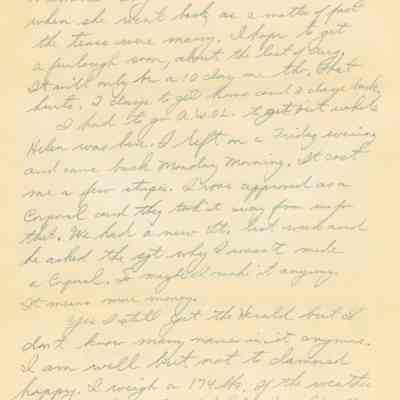 when she went back, as a matter of fact
the tears were many. I hope to get
a furlough soon, about the last of Aug.
It will only be a 10 day one tho. That
hurts. 3 days to get home and 3 days back.
I had to go A.W.O.L. to get out while
Helen was here. I left on a Friday evening
and came back Monday Morning. It cost
me a few stripes. I was approved as a
Corporal and they took it away from me for
that. We had a new Lt. last week and
he asked the sgt why I wasn't made
a Corporal. So maybe I make it anyway.
It means more money.
Yes I still get the Herald but I
don't know many names in it anymore.
I am well but not to damned
happy. I weigh a 174 lbs. If the weather